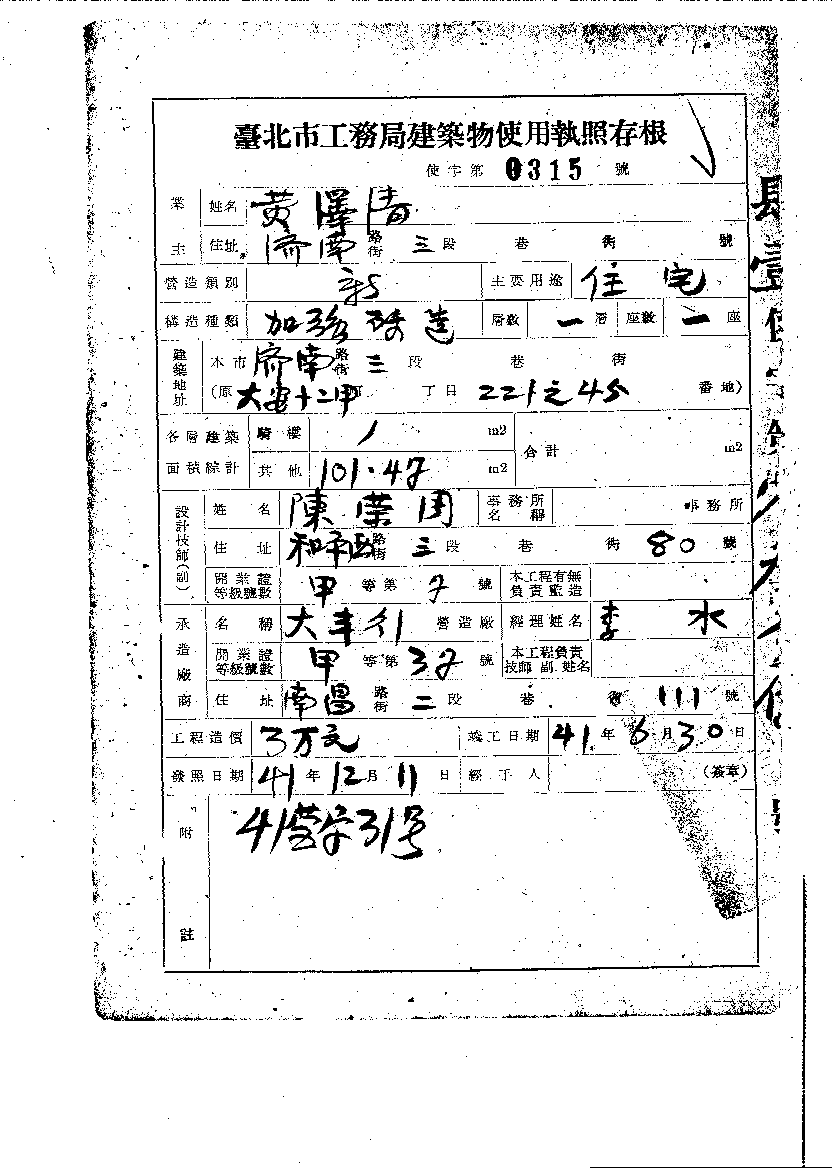 臺北市工務局建築物使用執照存根
使字第 0315 號
業主 姓名 黃澤清
住址 濟南 路街 三段 巷 街 號
營造類別 新 主要用途 住宅
構造種類 加強磚造 層數 一層 座數 一座
建築地址 本市 濟南 路街 三段 巷 街
(原 大安十二甲 丁目 221之45 番地)
各層建築面積綜計 騎樓 / m2 合計 m2
其他 101.47 m2
設計技師(副) 姓名 陳榮周 事務所名稱 事務所
住址 和平西 路街 三段 巷 街 80 號
開業證等級號數 甲 等第 7 號 本工程有無負責監造
承造廠商 名稱 大丰行 營造廠 經理姓名 李水
開業證等級號數 甲 等第 37 號 本工程負責技師副姓名
住址 南昌 路街 二段 巷 街 111 號
工程造價 3万元 竣工日期 41年6月30日
發照日期 41年12月11日 經手人 (簽章)
附註 41營字31号